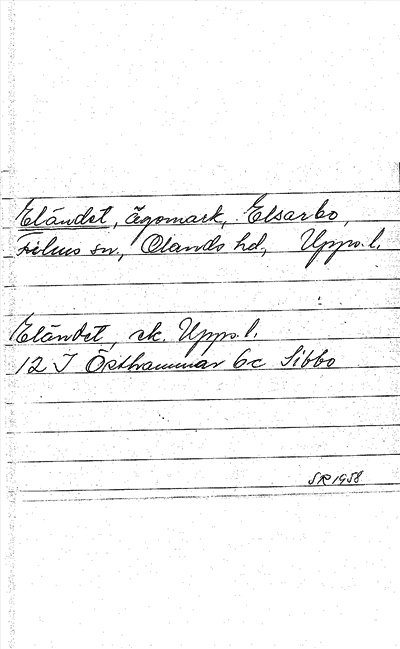 Eländet, ägomark, Elsarbo,
Films sn, Olands hd, Upps. l.
Eländet, ek. Upps. l.
12 I Östhammar 6c Sibbo
SR 1958